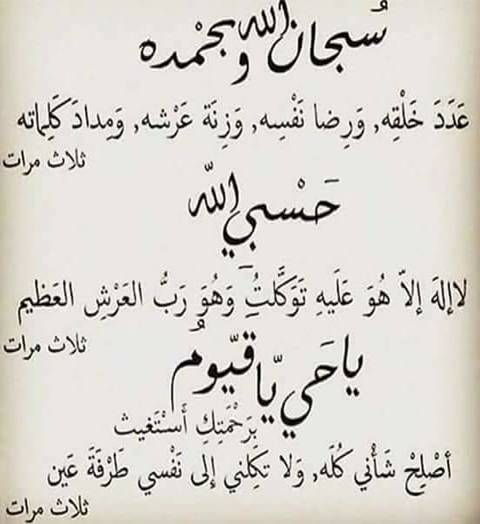 سُبحان الله وبحَمْده
عَدَدَ خَلْقِه, وَرِضا نَفْسِه, وَزِنَة عَرْشه, وَمِدادَ كَلِماته
ثلاث مرات
حَسْبي الله
لاإلهَ إلاّ هُوَ عَلَيهِ تَوَكَّلتُ وَهُوَ رَبُّ العَرْشِ العَظيم
ثلاث مرات
ياحَي يّاقيّومُ
بِرَحْمَتِكِ أَسْتَغيث
أصْلِحْ شَأْني كُلَه, وَلا تَكِلني إلى نَفْسي طَرْفَةَ عَين
ثلاث مرات